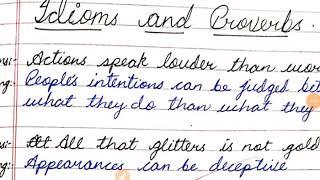 Idioms and Proverbs.
Actions speak louder than
People's intentions can be judged
what they do than what they
All that glitters is not gold
Appearances can be deceptive